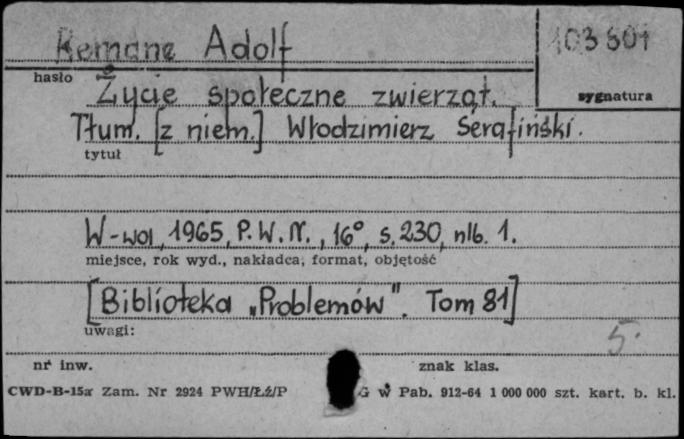 Remane Adolf
103801
hasło
sygnatura
Życie społeczne zwierząt.
Tłum. [z niem.] Włodzimierz Serafiński.
tytuł
W-wa, 1965, P.W.N., 16°, s. 230, nlb. 1.
miejsce, rok wyd., nakładca, format, objętość
[Biblioteka „Problemów”. Tom 81]
uwagi:
5.
nr inw.
znak klas.
CWD-B-15a Zam. Nr 2924 PWH/Łź/P G w Pab. 912-64 1 000 000 szt. kart. b. kl.